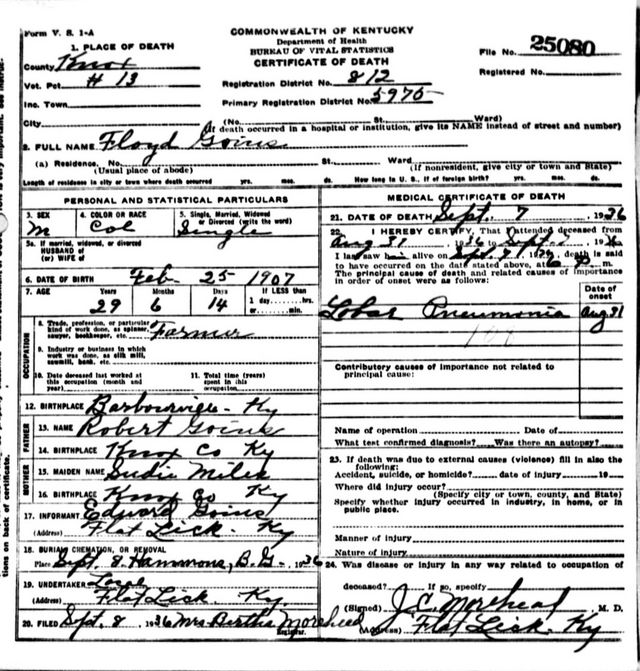 Form V. S. 1-A
COMMONWEALTH OF KENTUCKY
Department of Health
BUREAU OF VITAL STATISTICS
CERTIFICATE OF DEATH
File No. 25080
Registered No.
1. PLACE OF DEATH
County Knox
Vot. Pct # 13
Registration District No. 812
Inc. Town
Primary Registration District No. 5975
City (No. St. Ward)
(If death occurred in a hospital or institution, give its NAME instead of street and number)
2. FULL NAME Floyd Goins
(a) Residence. No. St. Ward
(Usual place of abode) (If nonresident, give city or town and State)
Length of residence in city or town where death occurred yrs. mos. ds. How long in U. S., if of foreign birth? yrs. mos. ds.
PERSONAL AND STATISTICAL PARTICULARS
3. SEX M
4. COLOR OR RACE Col
5. Single, Married, Widowed or Divorced (write the word) Single
5a. If married, widowed, or divorced
HUSBAND of
(or) WIFE of
6. DATE OF BIRTH Feb 25 1907
7. AGE Years Months Days If LESS than
1 day,.....hrs.
or.....min.
29 6 14
OCCUPATION
8. Trade, profession, or particular kind of work done, as spinner, sawyer, bookkeeper, etc. Farmer
9. Industry or business in which work was done, as silk mill, sawmill, bank, etc.
10. Date deceased last worked at this occupation (month and year)
11. Total time (years) spent in this occupation
12. BIRTHPLACE Barbourville - Ky
FATHER
13. NAME Robert Goins
14. BIRTHPLACE Knox Co Ky
MOTHER
15. MAIDEN NAME Sudie Miles
16. BIRTHPLACE Knox Co Ky
17. INFORMANT Edward Goins
(Address) Flat Lick. Ky
18. BURIAL CREMATION, OR REMOVAL
Place Sept. 8 Hammons, B. G- 1936
19. UNDERTAKER
(Address) Flat Lick Ky
20. FILED Sept. 8 1936 Mrs Bertha Morehead
Registrar.
MEDICAL CERTIFICATE OF DEATH
21. DATE OF DEATH Sept. 7 1936
22. I HEREBY CERTIFY, That I attended deceased from
Aug 31 1936 to Sept. 7 1936
I last saw h alive on Sept. 7 1936 death is said
to have occurred on the date stated above, at 6 P m.
The principal cause of death and related causes of importance
in order of onset were as follows:
Date of onset
Lobar Pneumonia Aug 31
Contributory causes of importance not related to
principal cause:
Name of operation Date of
What test confirmed diagnosis? Was there an autopsy?
23. If death was due to external causes (violence) fill in also the
following:
Accident, suicide, or homicide? date of injury 19
Where did injury occur?
(Specify city or town, county, and State)
Specify whether injury occurred in industry, in home, or in
public place.
Manner of injury
Nature of injury
24. Was disease or injury in any way related to occupation of
deceased? If so, specify
(Signed) J. C. Morehead M. D.
(Address) Flat Lick. Ky
tions on back of certificate.